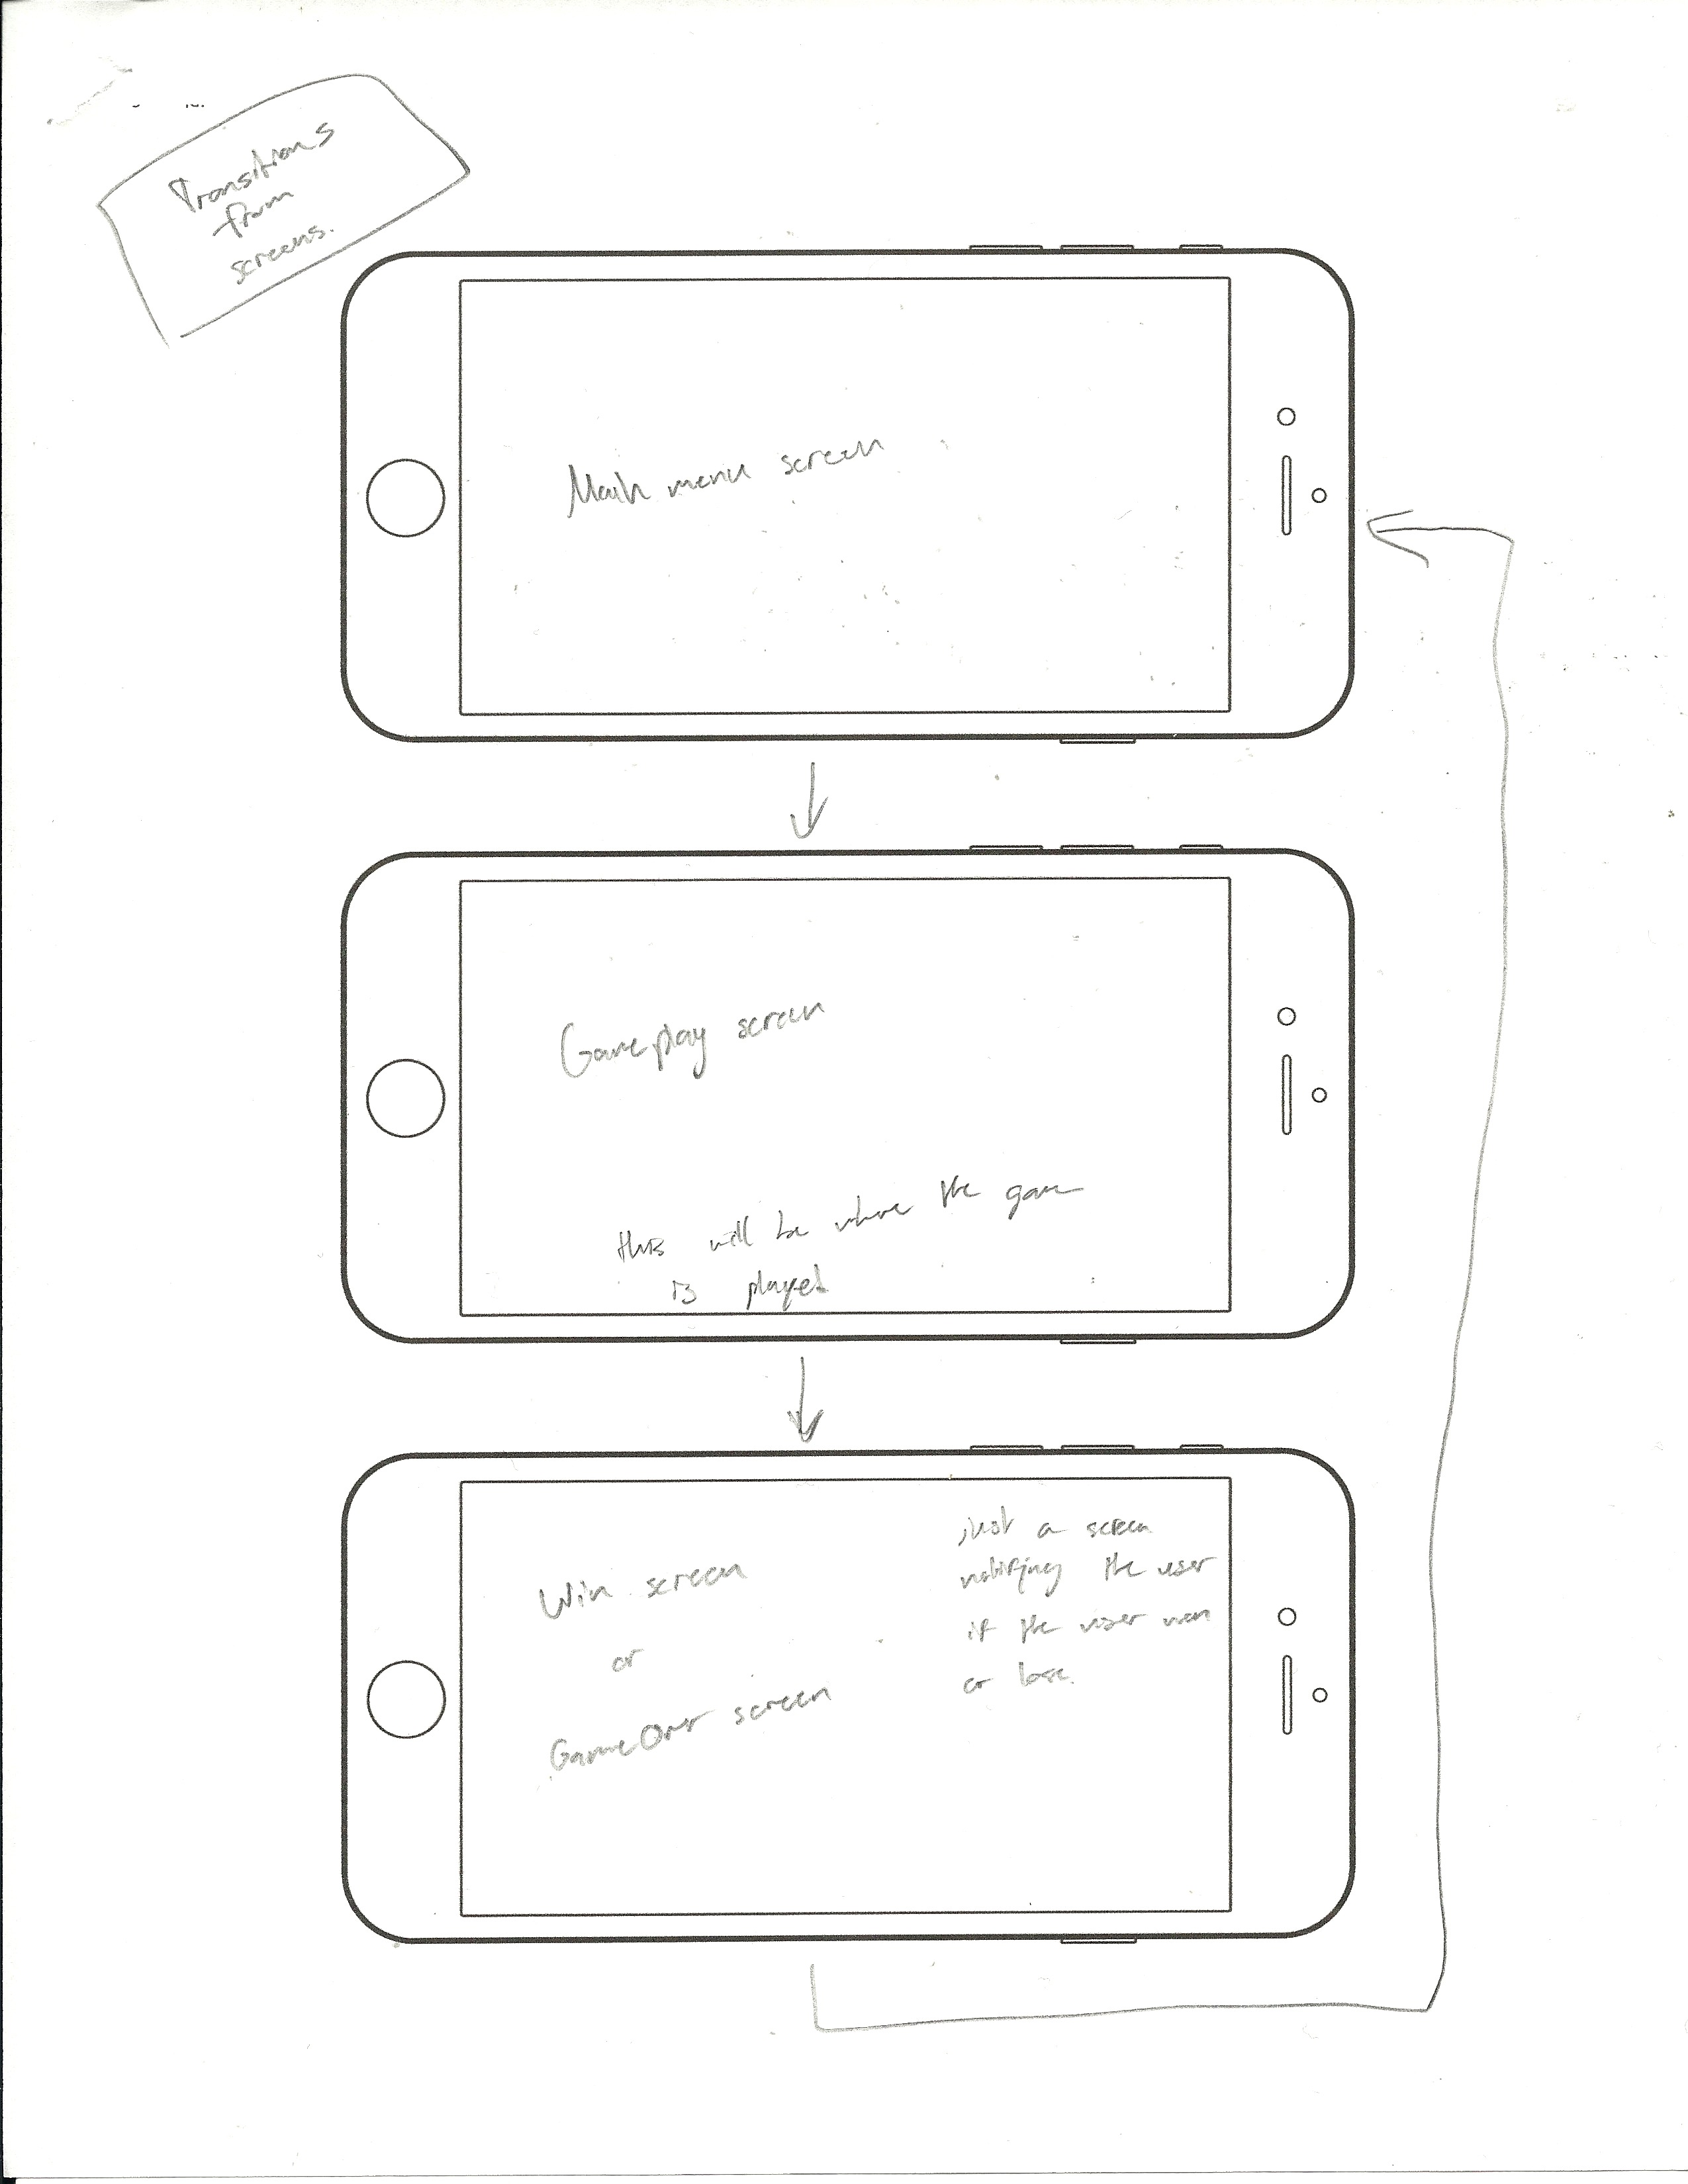 Transitions
from
screens.
Main menu screen
Gameplay screen
this will be where the game
is played
Win screen
or
GameOver screen
just a screen
notifying the user
if the user won
or lose.